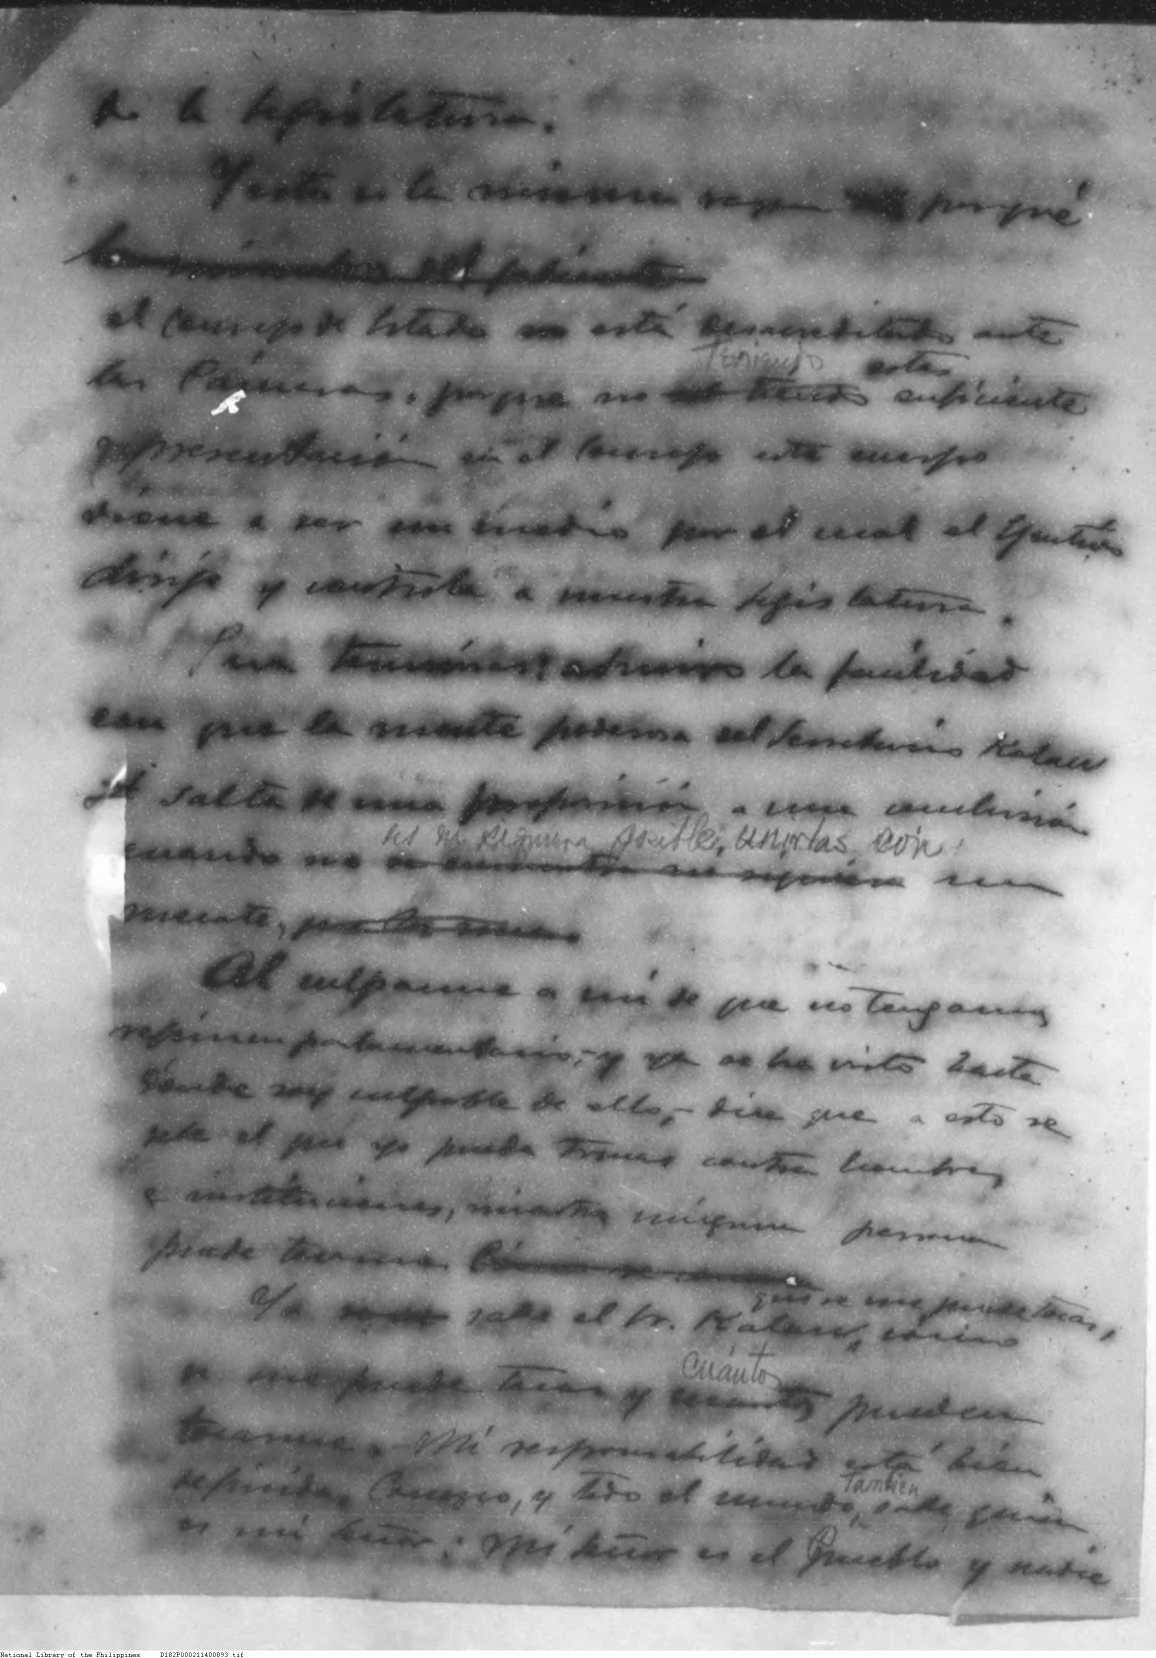 de la legislatura.
Y esta es la misma razon porqué
el Consejo de Estado no está desacreditado ante
Teniendo estas
las Cámaras, porque no suficiente
representación en el Consejo este cuerpo
viene a ser un medio por el cual el Ejecutivo
dirije y controla a nuestra legislatura.
la facilidad
con que la mente poderosa del Secretario Kalaw
salta de una proposición a una conclusión
ni siquiera posible, unirlas con
cuando no es un
puente,
Al culparme a mí de que no tengamos
régimen parlamentario,- y ya se ha visto hasta
dónde soy culpable de ello,- dice que a esto se
debe el que yo pueda tronar contra hombres
e instituciones, mientras ninguna persona
puede tocarme.
que se me puede tocar,
Ya sabe el Sr. Kalaw, cómo
cuántos
se me puede tocar y pueden
tocarme. Mi responsabilidad está bien
también
definida. Conozco, y todo el mundo, sabe quién
es mi Señor: Mi Señor es el Pueblo y nadie
National Library of the Philippines D182P000211400893.tif